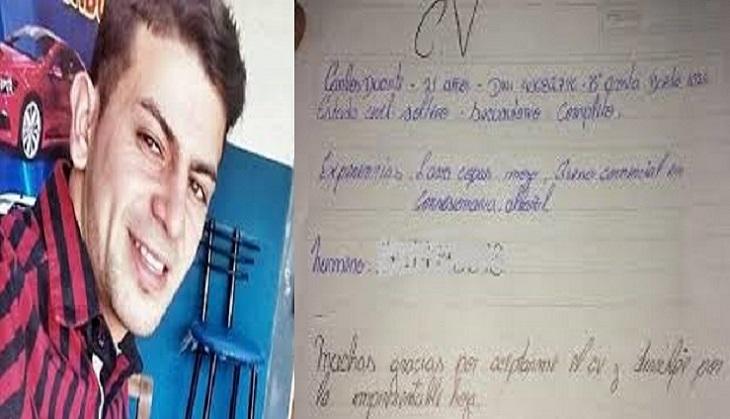 CV
Carlos Duarte - 21 años - Dni
Estado civil soltero - Secundario Completo.
Experiencias. Lava copas, mozo, Asesor comercial en
Consesionaria.
hermano:
Muchas gracias por aceptarme el cv y disculpe por
la impresentable hoja.